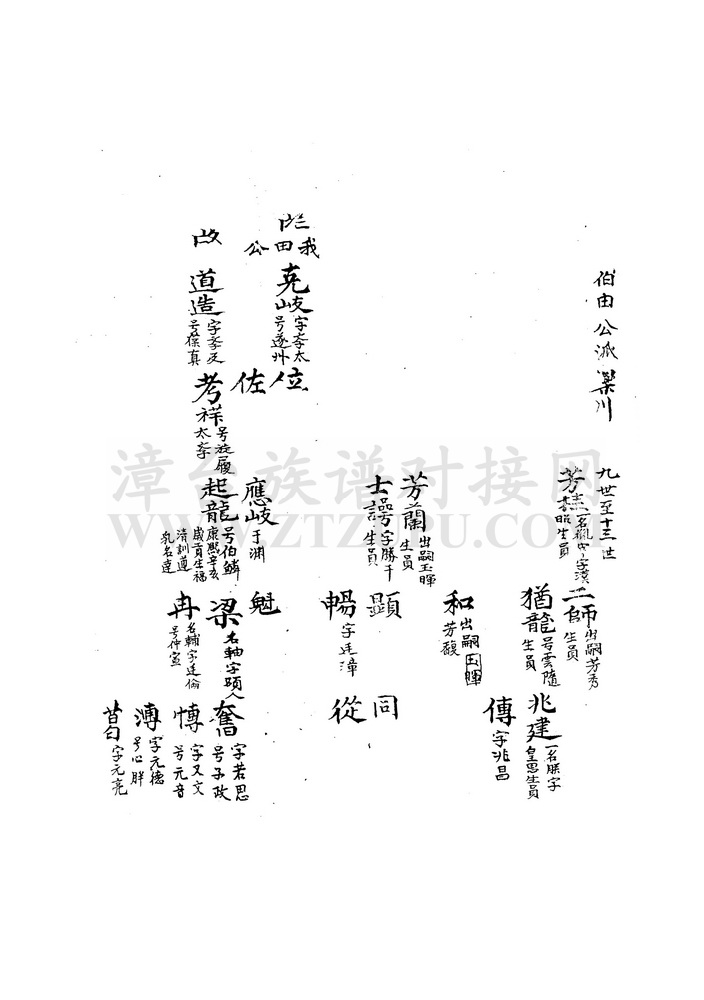 伯由公派 梁川
九世至十三世
我田公
改
堯岐 字季太 号遂州
道造 字季廷 号葆真
位
佐
考祥 号旋履 太季
芳 一名 字漢昭 生員
芳蘭 出嗣玉暉 生員
士 号 字勝千 生員
應岐 于淵
起龍 号伯鱗 康熙辛亥歲貢生福清訓導 乳名達
師 出嗣芳秀 生員
猶龍 号雲隨 生員
和 出嗣玉暉 芳馥
顯
暢 字廷漳
魁
梁 名軸字題人
冉 名輔字廷倫 号仲宣
兆建 一名勝字皇思生員
傳 字兆昌
同
從
奮 字若思 号子政
博 字又文 号元音
溥 字元德 号心胖
字元亮
漳台族谱对接网
WWW.ZTZUPU.COM